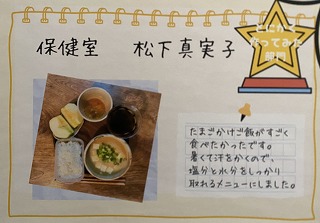 保健室 松下真実子
とにかく
作ってみた
部門
たまごかけご飯がすごく
食べたかったです。
暑くて汗をかくので、
塩分と水分をしっかり
取れるメニューにしました。